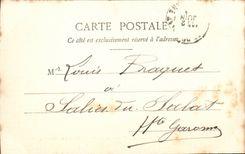 CARTE POSTALE
Ce côté est exclusivement réservé à l'adresse
Mr Louis Braquet
à
Salies du Salat
Hte Garonne